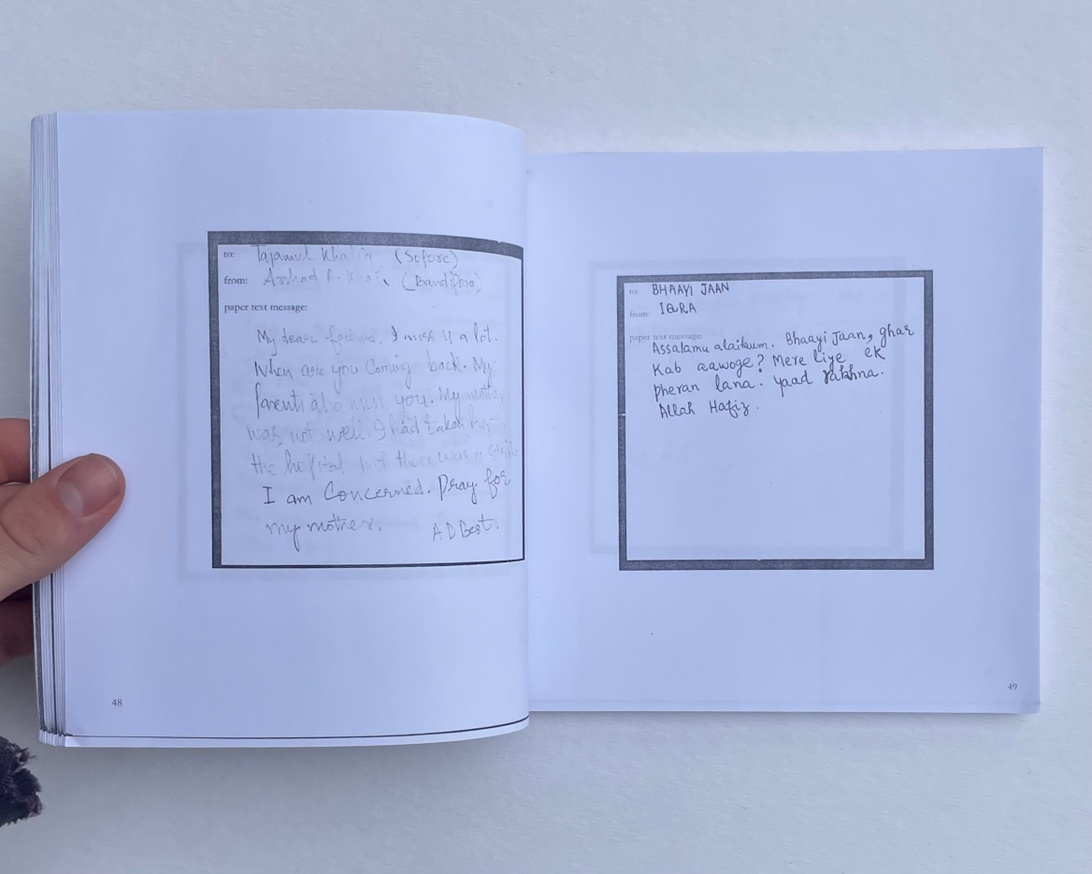 to: Tajamul Khaliq (Sofore)
from: Arshad A. (Bandipora)
paper text message:
My dear friend, I miss u a lot.
When are you Coming back. My
parents also miss you. My mother
was not well. I had taken her
the hospital but there was a
I am Concerned. Pray for
my mother.
A D Best.
48
to: BHAAYI JAAN
from: IQRA
paper text message:
Assalamu alaikum. Bhaayi Jaan, ghar
Kab aawoge? Mere liye ek
pheran lana. Yaad rakhna.
Allah Hafiz.
49